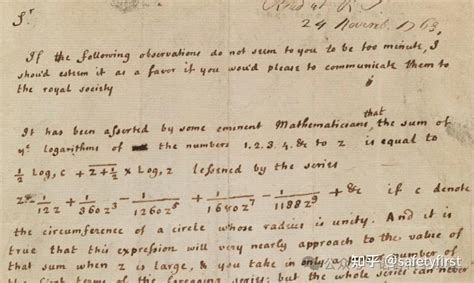 Sr
Read at R.S.
24 Novemr. 1763
If the following observations do not seem to you to be too minute, I
should esteem it as a favor if you would please to communicate them to
the royal society
It has been asserted by some eminent Mathematicians that the sum of
ye logarithms of the numbers 1.2.3.4.&c to z is equal to
½ Log, c + z+½ × Log, z lessened by the series
z − 1/12z + 1/360z³ − 1/1260z⁵ + 1/1680z⁷ − 1/1188z⁹ + &c if c denote
the circumference of a circle whose radius is unity. And it is
true that this expression will very nearly approach to the value of
that sum when z is large, & you take in only a number of
first terms of the foregoing series: but the whole series can never
知乎 @safetyfirst